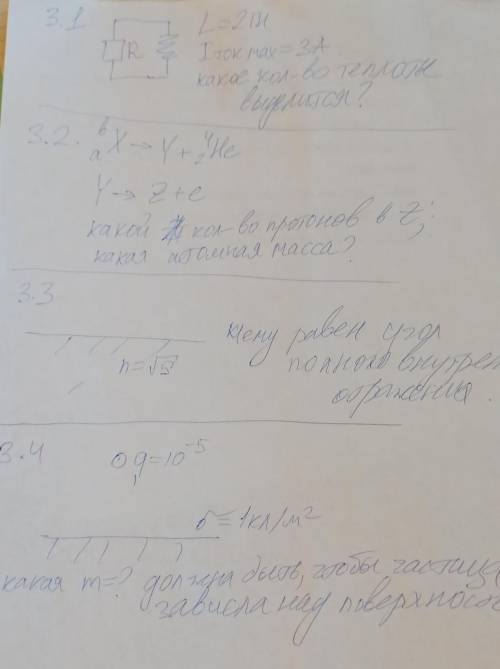 3.1
R
L = 2Гн
I ток max = 3A
какое кол-во теплоты
выделится?
3.2. ᵇₐX → Y + ⁴₂He
Y → Z + e
какой кол-во протонов в Z;
какая атомная масса?
3.3
n = √5
Чему равен угол
полного внутрен
отражения.
3.4
q = 10⁻⁵
σ = 1кл/м²
какая m=? должна быть, чтобы частица
зависла над поверхност